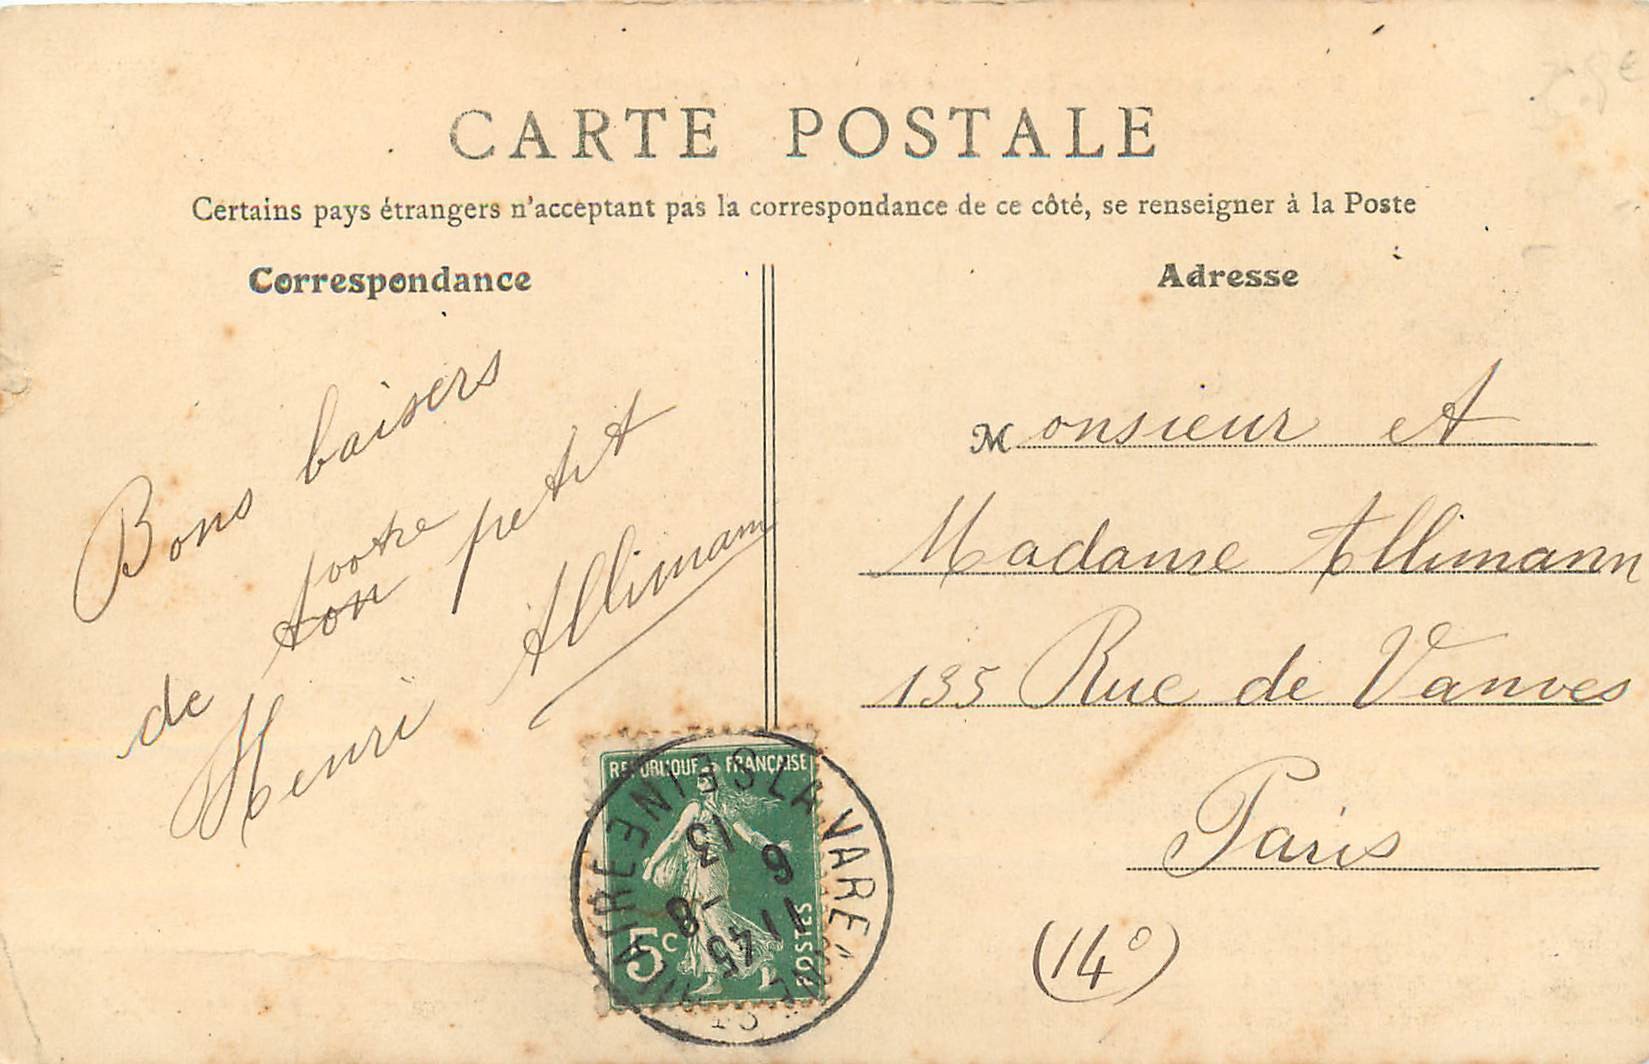 CARTE POSTALE
Certains pays étrangers n'acceptant pas la correspondance de ce côté, se renseigner à la Poste
Correspondance
Adresse
Bons baisers
de ton votre petit
Henri Allimann
Monsieur et
Madame Allimann
135 Rue de Vanves
Paris
(14º)
REPUBLIQUE FRANÇAISE
5c
POSTES
LA VARENNE
SEINE
11 45
6 - 8
13